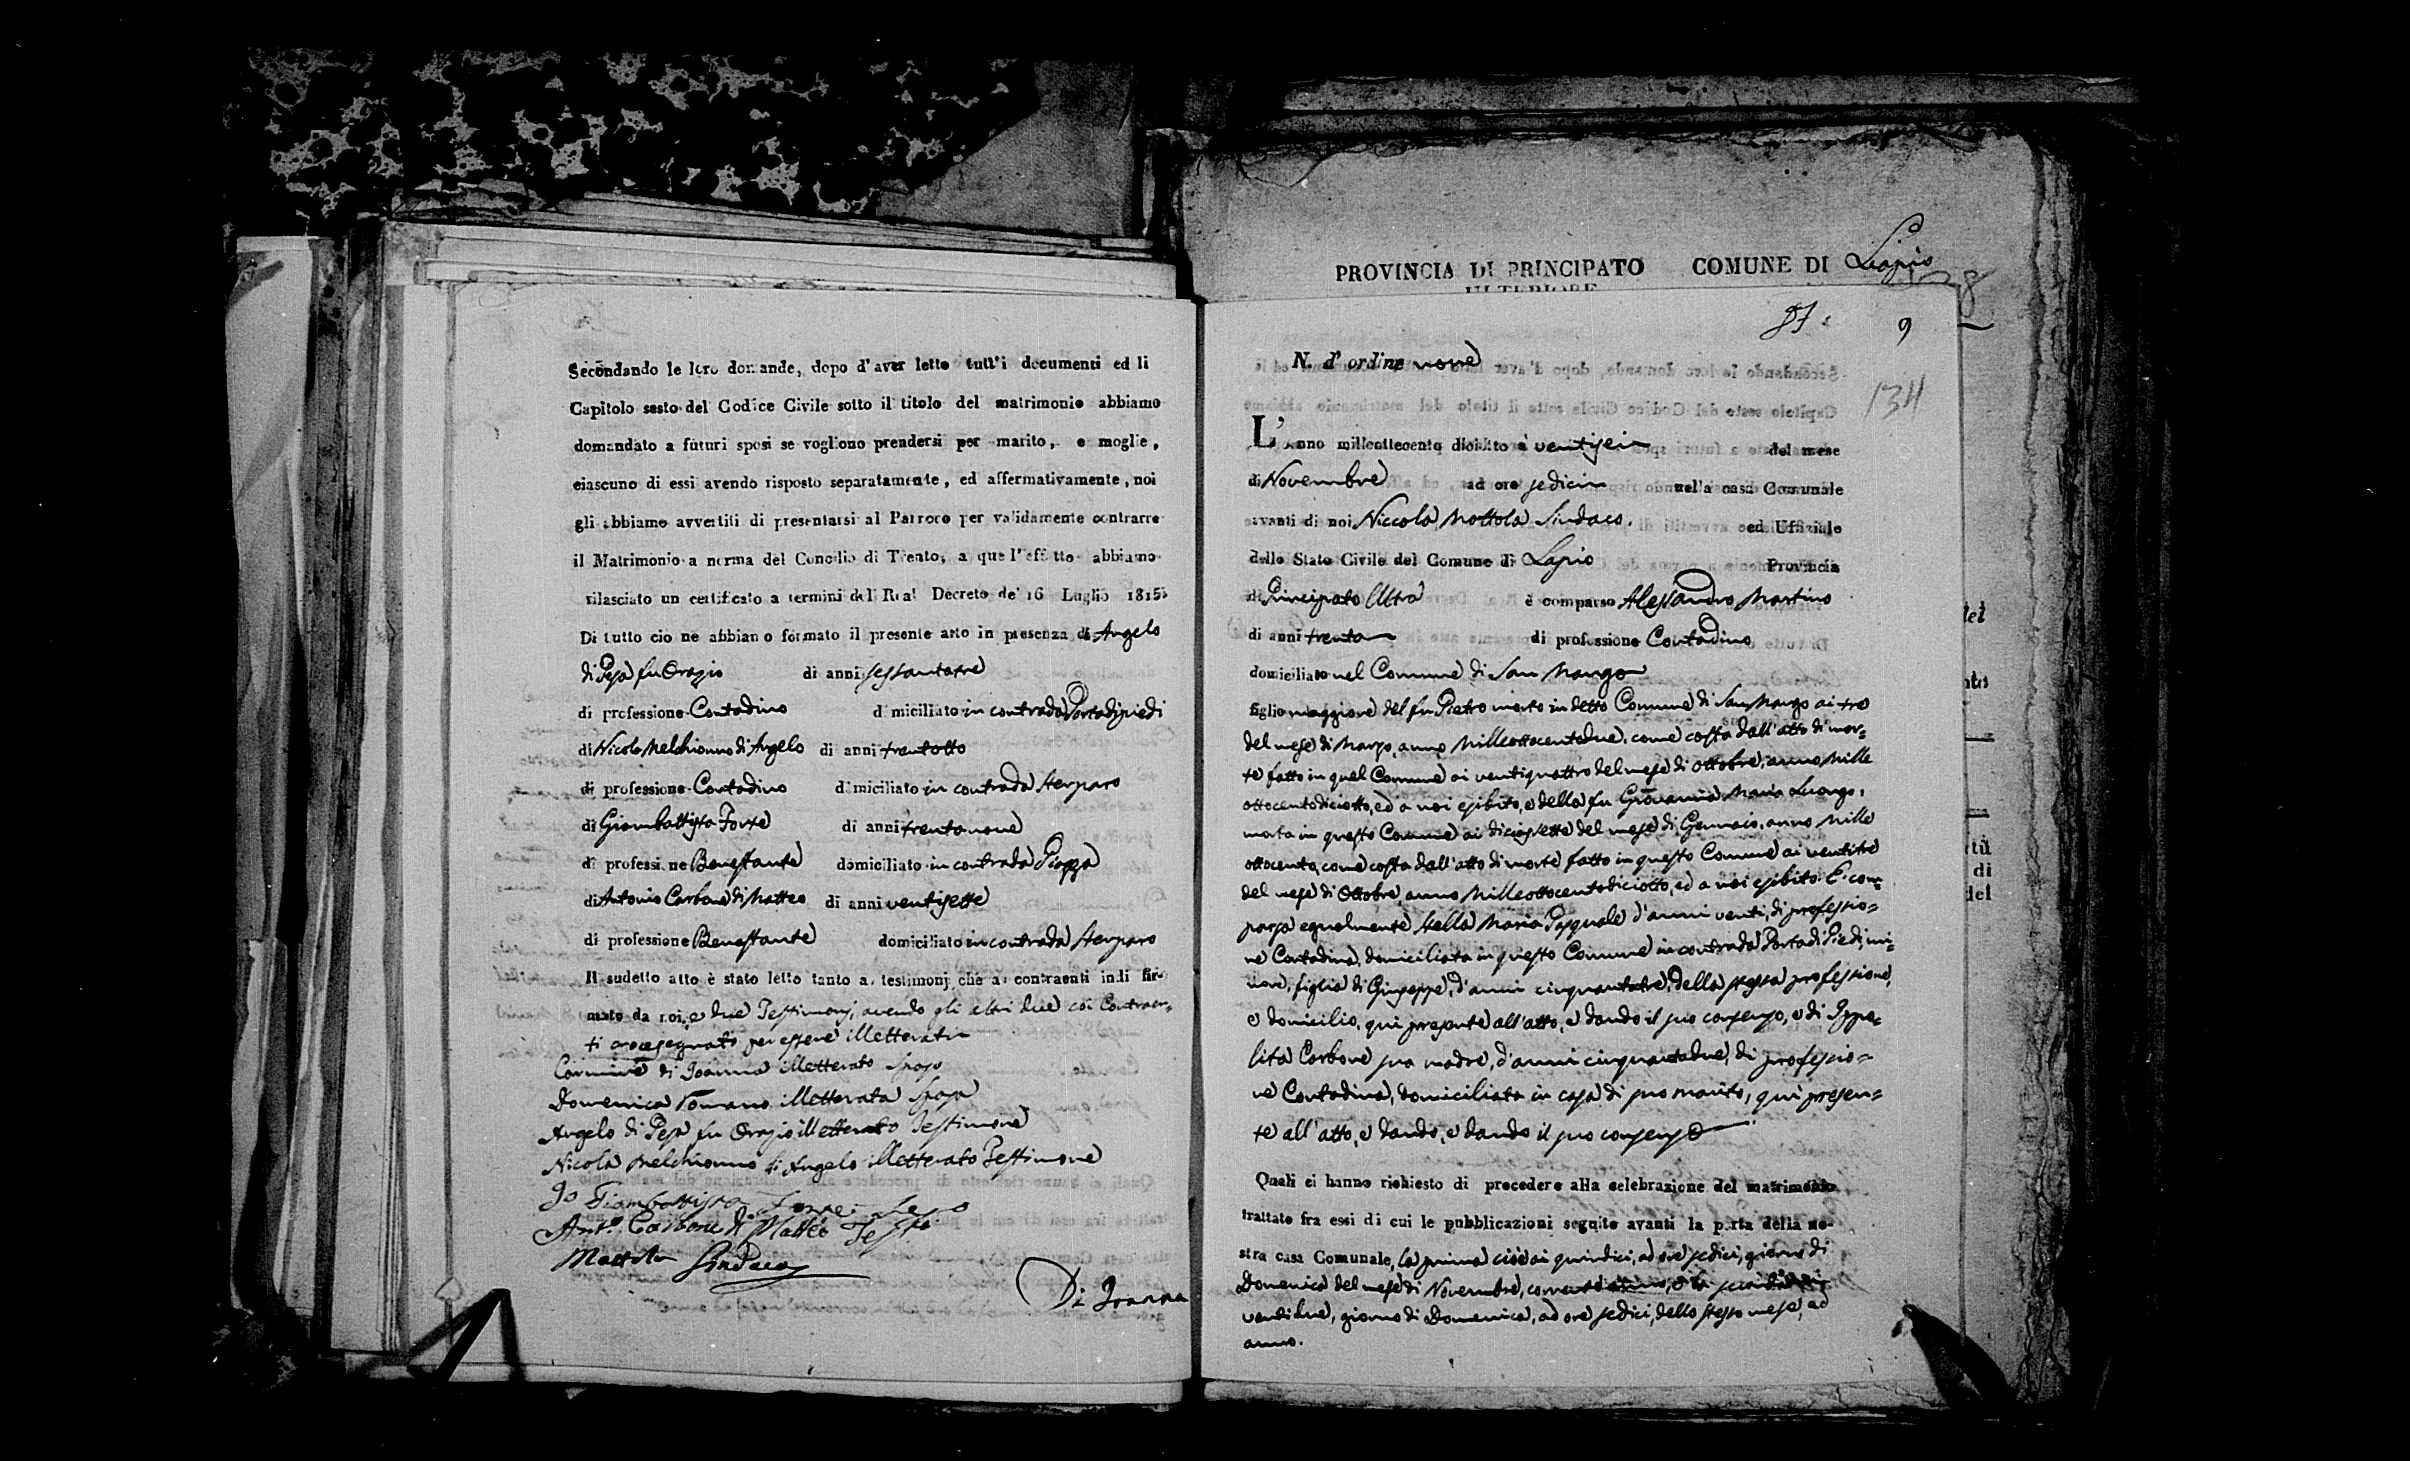 Secondando le loro domande, dopo d'aver letto tutt'i documenti ed li
Capitolo sesto del Codice Civile sotto il titolo del matrimonio abbiamo
domandato a futuri sposi se vogliono prendersi per marito, e moglie,
ciascuno di essi avendo risposto separatamente, ed affermativamente, noi
gli abbiamo avvertiti di presentarsi al Parroco per validamente contrarre
il Matrimonio a norma del Concilio di Trento, a quel'effetto abbiamo
rilasciato un certificato a termini del Real Decreto de' 16 Luglio 1815
Di tutto ciò ne abbiamo formato il presente atto in presenza di Angelo
di Pesa fu Orazio di anni sessantatre
di professione Contadino domiciliato in contrada Portadipiedi
di Nicola Melchionno di Angelo di anni trentotto
di professione Contadino domiciliato in contrada Sterparo
di Giambattista Forte di anni trentanove
di professione Benestante domiciliato in contrada Piazza
di Antonio Carbone di Matteo di anni ventisette
di professione Benestante domiciliato in contrada Sterparo
Il sudetto atto è stato letto tanto a' testimonj che a' contraenti indi fir-
mato da noi, e due Testimonj, avendo gli altri due coi Contraen-
ti crocesegnato per essere illetterati
Carmine di Joanna illetterato Sposo
Domenica Romano illetterata Sposa
Angelo di Pesa fu Orazio illetterato Testimone
Nicola Melchionno di Angelo illetterato Testimone
Io Giambattista Forte
Ant.o Carbone di Matteo Test.o
Mottola Sindaco
Di Joanna
PROVINCIA DI PRINCIPATO COMUNE DI Lapio
ULTERIORE
9
134
N. d' ordine nove
L'Anno milleottocento diciotto a' ventisei del mese
di Novembre ad ore sedici nella casa Comunale
avanti di noi Niccola Mottola Sindaco. ed Uffiziale
dello Stato Civile del Comune di Lapio Provincia
di Principato Ultra è comparso Alessandro Martino
di anni trenta di professione Contadino
domiciliato nel Comune di San Mango
figlio maggiore del fu Pietro morto in detto Comune di San Mango ai tre
del mese di Marzo, anno Milleottocentodue, come costa dall'atto di mor-
te fatto in quel Comune ai ventiquattro del mese di Ottobre, anno Mille
ottocentodiciotto, ed a noi esibito, e della fu Giovanna Maria Luongo,
morta in questo Comune ai diciassette del mese di Gennaio, anno Mille
ottocento, come costa dall'atto di morte fatto in questo Comune ai ventitre
del mese di Ottobre, anno Milleottocentodiciotto, ed a noi esibito. E com-
parsa egualmente Stella Maria Pasquale d'anni venti, di professio-
ne Contadina, domiciliata in questo Comune in contrada Porta di Piedi, mi-
nore, figlia di Giuseppe, d'anni cinquantatre, della stessa professione,
e domicilio, qui presente all'atto, e dando il suo consenso, e di Ippo-
lita Carbone sua madre, d'anni cinquantadue, di professio-
ne Contadina, domiciliata in casa di suo marito, qui presen-
te all'atto, e dando, e dando il suo consenso
Quali ci hanno richiesto di procedere alla celebrazione del matrimonio
trattato fra essi di cui le pubblicazioni seguite avanti la porta della no-
stra casa Comunale, la prima cioè ai quindici, ad ore sedici, giorno di
Domenica del mese di Novembre, corrente anno, e la seconda ai
ventidue, giorno di Domenica, ad ore sedici, dello stesso mese, ed
anno.